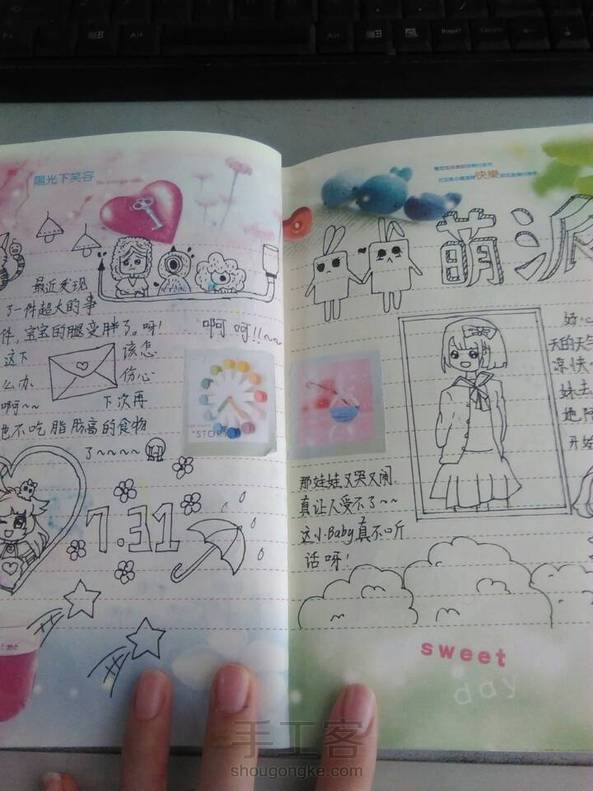 陽光下笑容
最近发现
了一件超大的事
件，宝宝的腿变胖了。呀！
这下
该怎
么办
伤心
啊～～
下次再
也不吃脂肪高的食物
了～～～～
啊呵!!～～
STORY
7.31
快樂
萌派
好心
天的天气
凉快
妹去
地
开始
那娃娃又哭又闹
真让人受不了～～
这小Baby真不听
话呀！
sweet
day
手工客
shougongke.com